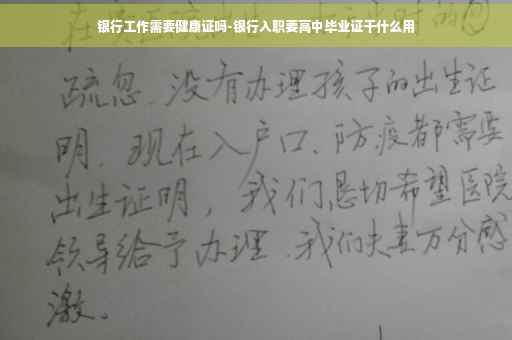 银行工作需要健康证吗-银行入职要高中毕业证干什么用
疏忽、没有办理孩子的出生证
明、现在入户口、防疫都需要
出生证明，我们恳切希望医院
领导给予办理、我们夫妻万分感
激。